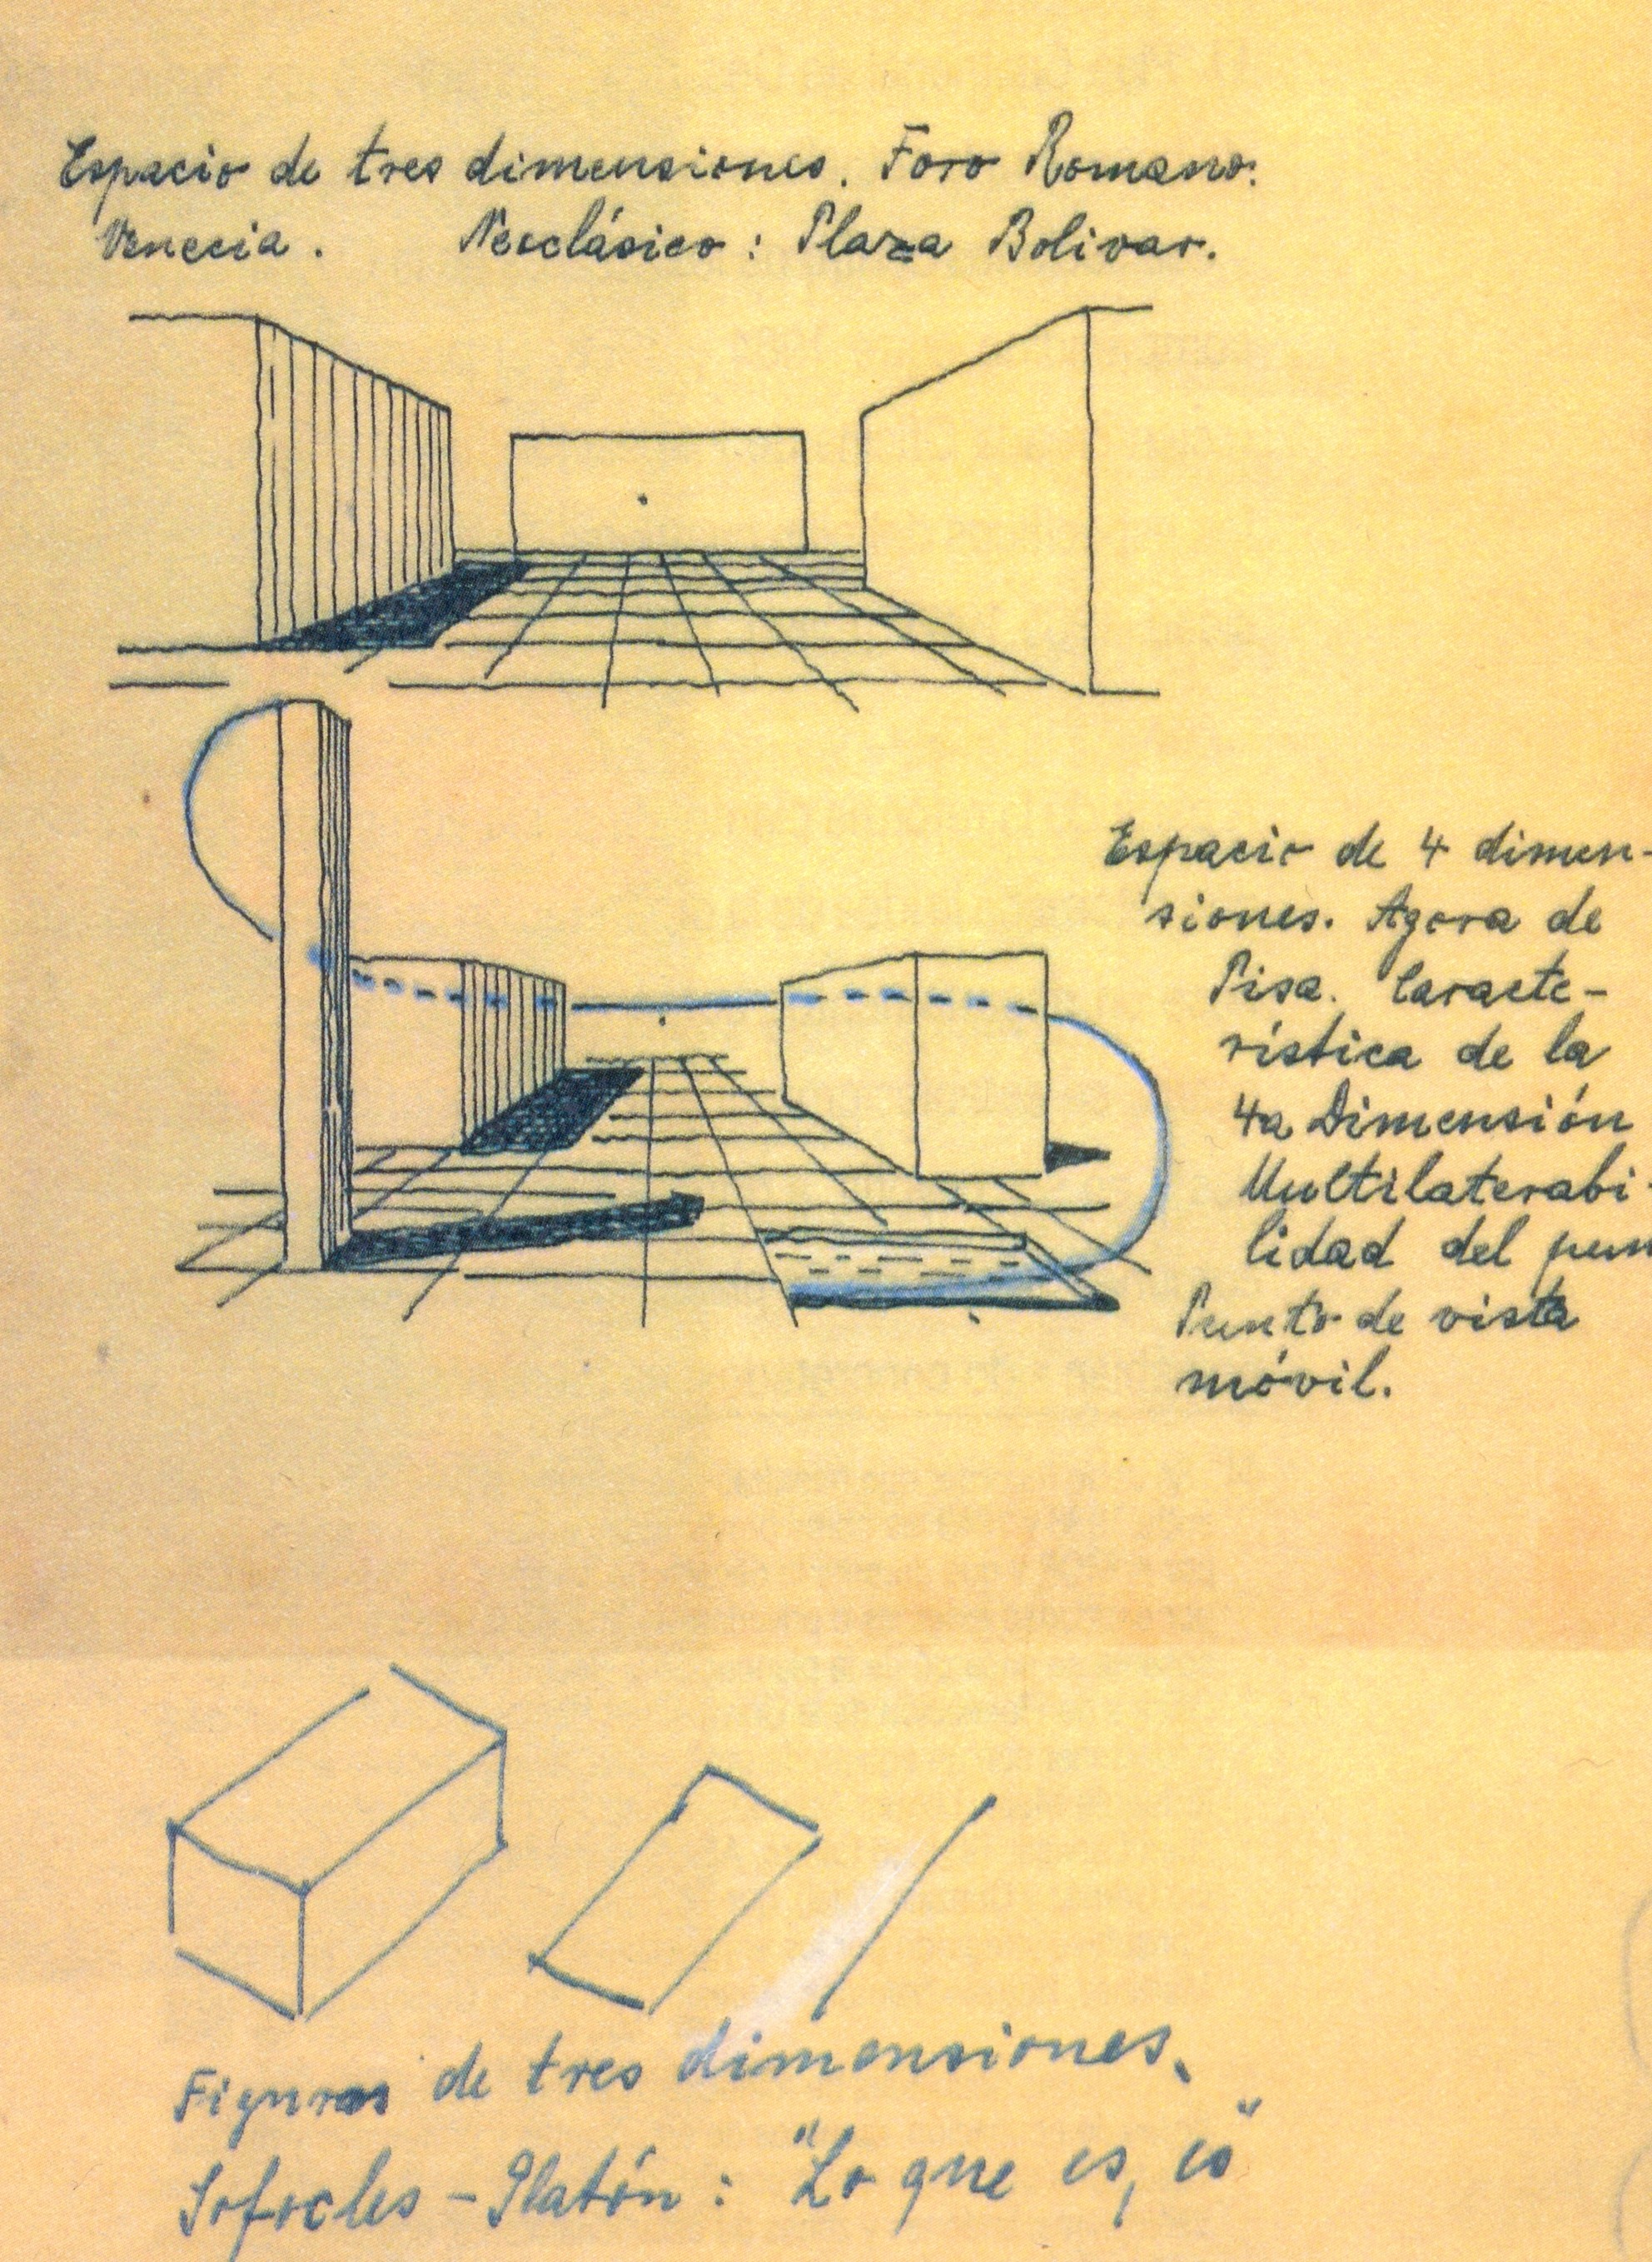 Espacio de tres dimensiones. Foro Romano.
Venecia. Neoclásico: Plaza Bolivar.
Espacio de 4 dimen-
siones. Agora de
Pisa. Caracte-
rística de la
4a Dimensión
Multilaterabi-
lidad del pun
Punto de vista
móvil.
Figuras de tres dimensiones.
Sofocles - Platón: "Lo que es, es"